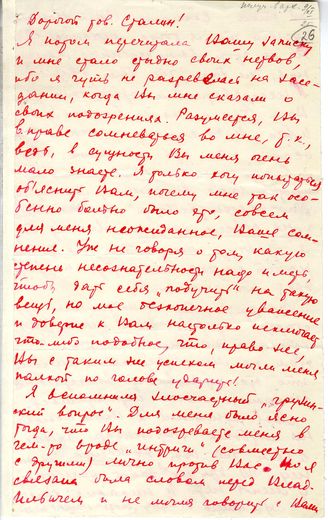 26
Дорогой тов. Сталин!
Я потом перечитала Вашу записку
и мне стало стыдно своих нервов,
ибо я чуть не разревелась на засе-
дании, когда Вы мне сказали о
своих подозрениях. Разумеется, Вы
вправе сомневаться во мне, т.к.,
ведь, в сущности Вы меня очень
мало знаете. Я только хочу попытаться
объяснить Вам, почему мне так осо-
бенно больно было это, совсем
для меня неожиданное, Ваше сом-
нение. Уж не говоря о том, какую
степень несознательности надо иметь
чтобы дать себя „подучить" на такую
вещь, но мое безконечное уважение
и доверие к Вам настолько исключает
что-либо подобное, что, право же,
Вы с таким же успехом могли меня
палкой по голове ударить!
Я вспомнила злосчастный „грузин-
ский вопрос". Для меня было ясно
тогда, что Вы подозреваете меня в
чем-то вроде „интриги" (совместно
с другими) лично против Вас. Но я
связана была словом перед Влад.
Ильичем и не могла говорить с Вами